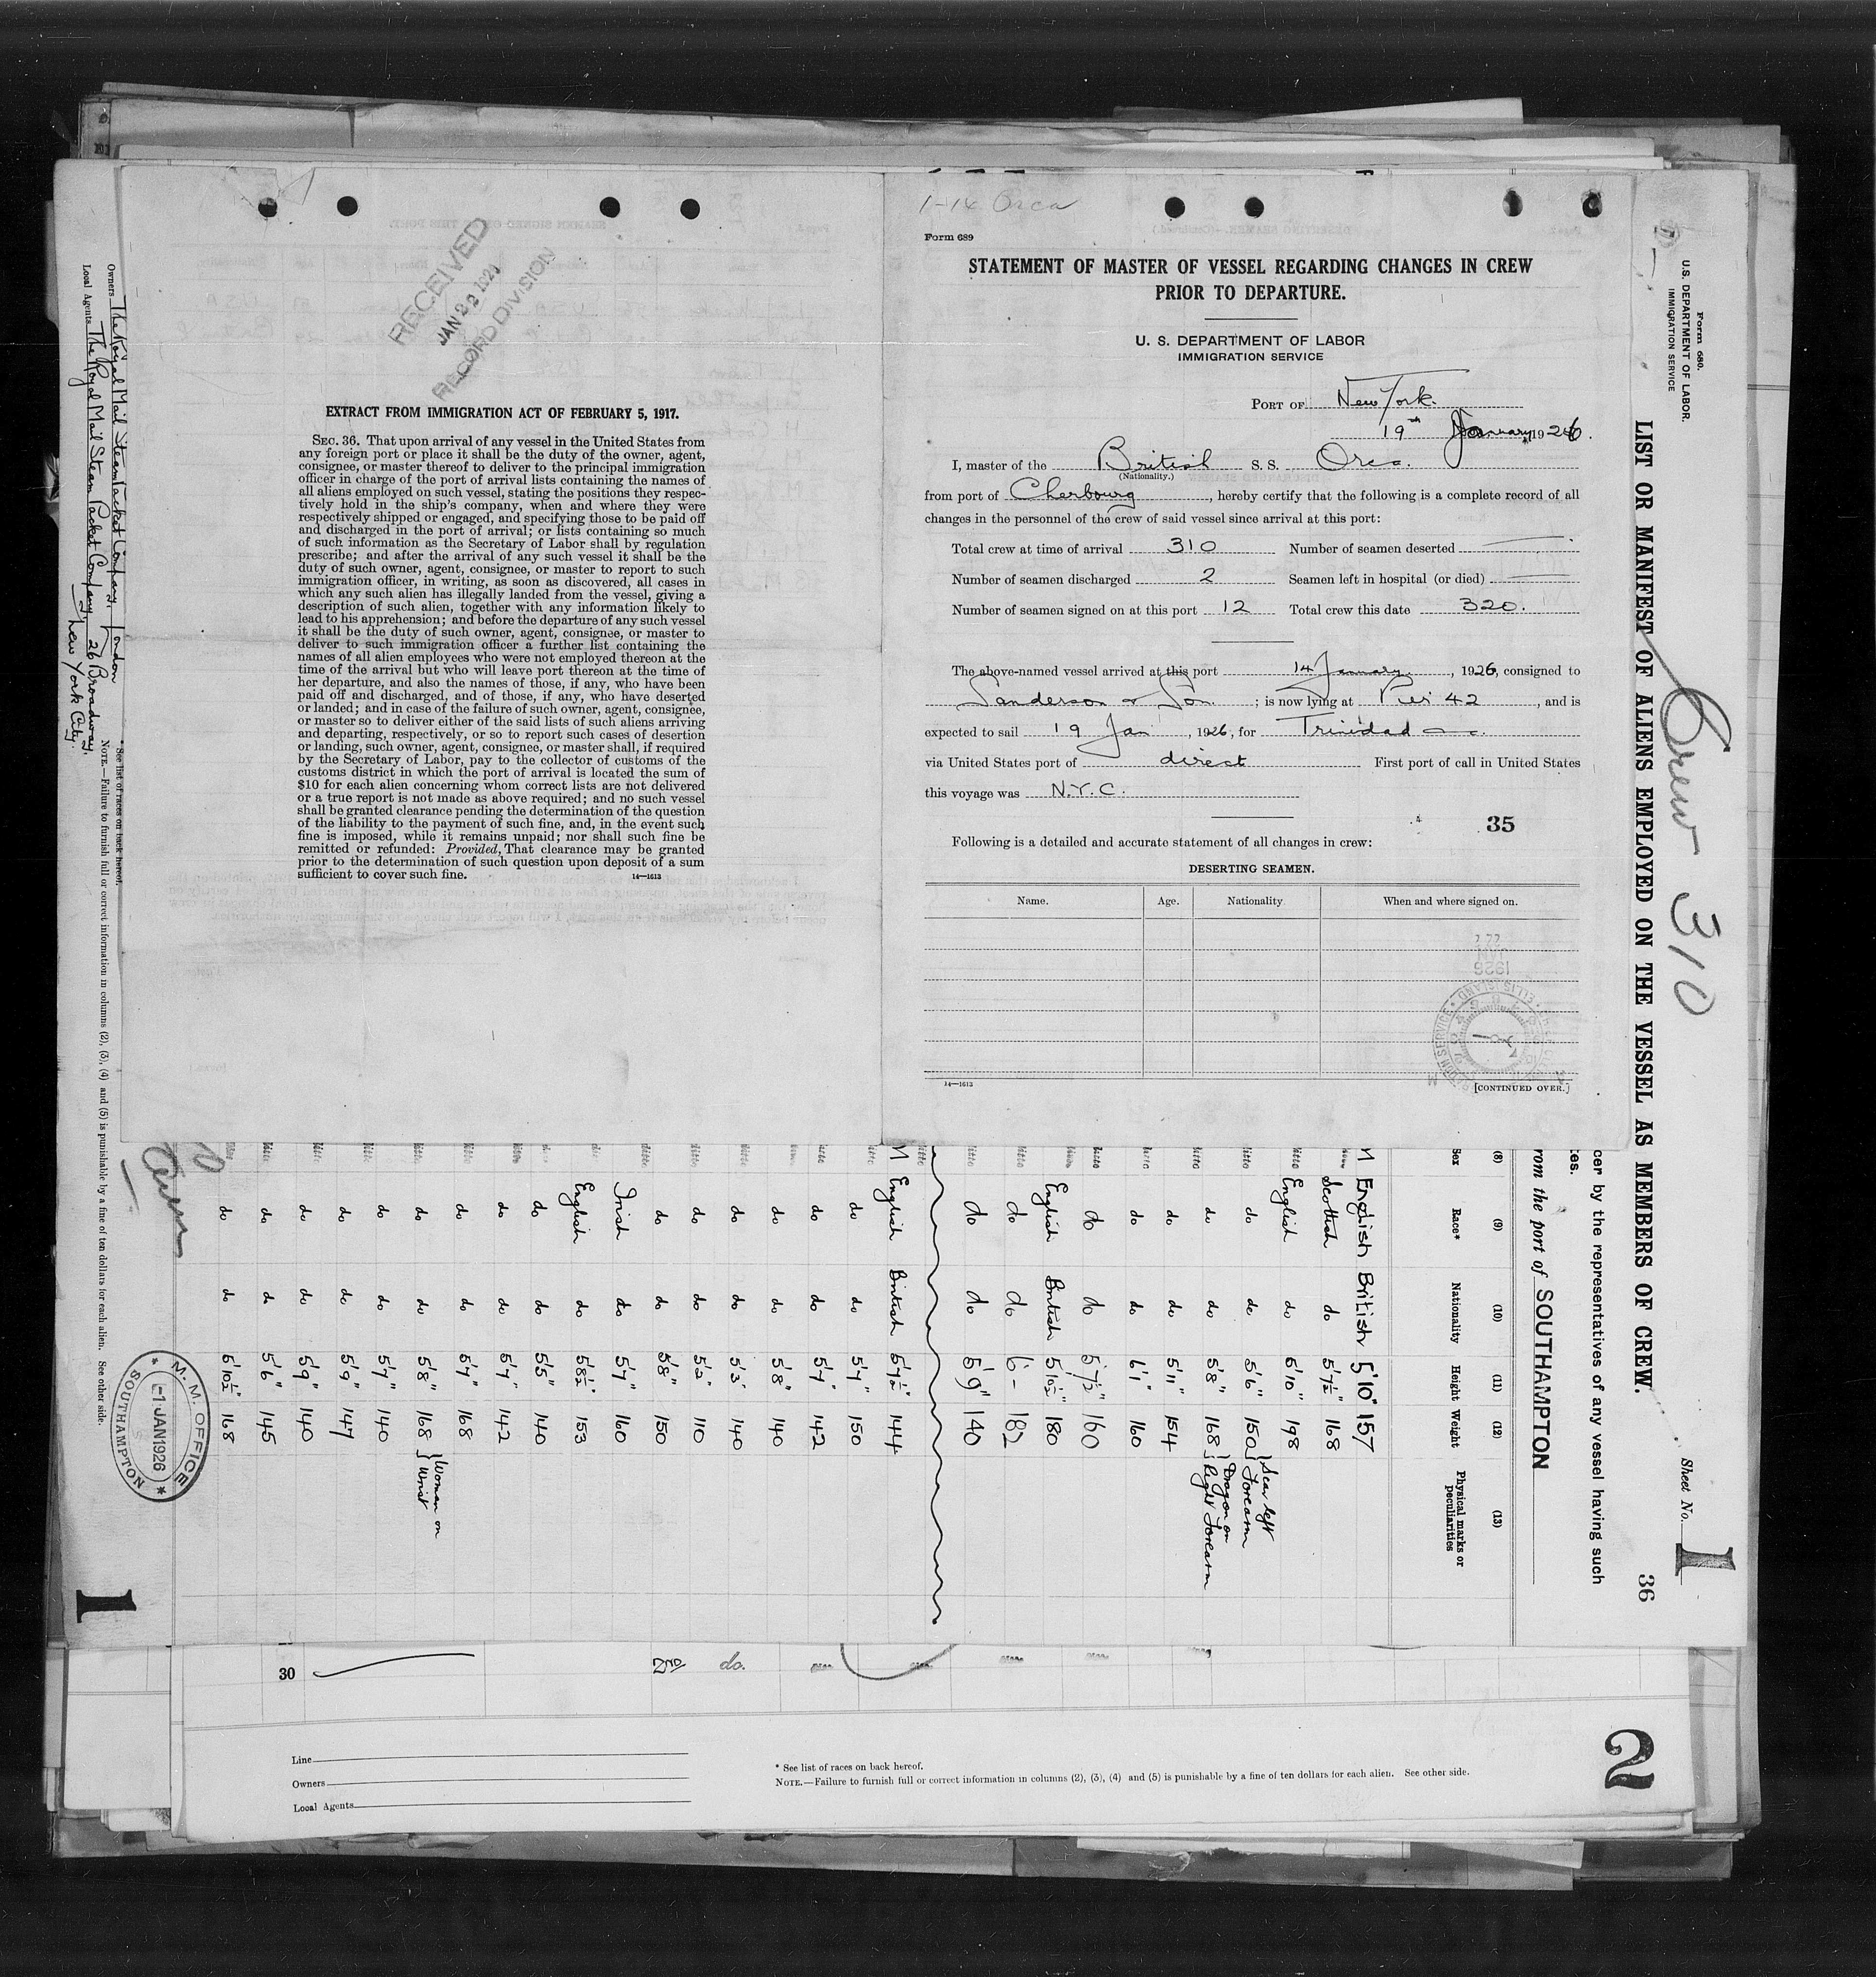 RECEIVED
JAN 22 1926
RECORD DIVISION
EXTRACT FROM IMMIGRATION ACT OF FEBRUARY 5, 1917.
SEC. 36. That upon arrival of any vessel in the United States from
any foreign port or place it shall be the duty of the owner, agent,
consignee, or master thereof to deliver to the principal immigration
officer in charge of the port of arrival lists containing the names of
all aliens employed on such vessel, stating the positions they respec-
tively hold in the ship's company, when and where they were
respectively shipped or engaged, and specifying those to be paid off
and discharged in the port of arrival; or lists containing so much
of such information as the Secretary of Labor shall by regulation
prescribe; and after the arrival of any such vessel it shall be the
duty of such owner, agent, consignee, or master to report to such
immigration officer, in writing, as soon as discovered, all cases in
which any such alien has illegally landed from the vessel, giving a
description of such alien, together with any information likely to
lead to his apprehension; and before the departure of any such vessel
it shall be the duty of such owner, agent, consignee, or master to
deliver to such immigration officer a further list containing the
names of all alien employees who were not employed thereon at the
time of the arrival but who will leave port thereon at the time of
her departure, and also the names of those, if any, who have been
paid off and discharged, and of those, if any, who have deserted
or landed; and in case of the failure of such owner, agent, consignee,
or master so to deliver either of the said lists of such aliens arriving
and departing, respectively, or so to report such cases of desertion
or landing, such owner, agent, consignee, or master shall, if required
by the Secretary of Labor, pay to the collector of customs of the
customs district in which the port of arrival is located the sum of
$10 for each alien concerning whom correct lists are not delivered
or a true report is not made as above required; and no such vessel
shall be granted clearance pending the determination of the question
of the liability to the payment of such fine, and, in the event such
fine is imposed, while it remains unpaid; nor shall such fine be
remitted or refunded: Provided, That clearance may be granted
prior to the determination of such question upon deposit of a sum
sufficient to cover such fine.
14—1613
1-14 Orca
Form 689
STATEMENT OF MASTER OF VESSEL REGARDING CHANGES IN CREW
PRIOR TO DEPARTURE.
U. S. DEPARTMENT OF LABOR
IMMIGRATION SERVICE
PORT OF New York.
19th January, 1926.
I, master of the British S. S. Orca.
(Nationality.)
from port of Cherbourg, hereby certify that the following is a complete record of all
changes in the personnel of the crew of said vessel since arrival at this port:
Total crew at time of arrival 310 Number of seamen deserted
Number of seamen discharged 2 Seamen left in hospital (or died)
Number of seamen signed on at this port 12 Total crew this date 320.
The above-named vessel arrived at this port 14 January, 1926, consigned to
Sanderson & Son. ; is now lying at Pier 42, and is
expected to sail 19 Jan, 1926, for Trinidad
via United States port of direct First port of call in United States
this voyage was N.Y.C.
35
Following is a detailed and accurate statement of all changes in crew:
DESERTING SEAMEN.
Name. Age. Nationality. When and where signed on.
14—1613
[CONTINUED OVER.]
Form 680.
U.S. DEPARTMENT OF LABOR
IMMIGRATION SERVICE
LIST OR MANIFEST OF ALIENS EMPLOYED ON THE VESSEL AS MEMBERS OF CREW.
Crew 310
Sheet No. 1
36
cer by the representatives of any vessel having such
rom the port of SOUTHAMPTON
(8) (9) (10) (11) (12) (13)
Sex Race* Nationality Height Weight Physical marks or peculiarities
M English British 5'10" 157
Scottish do 5'7½" 168
English do 5'10" 198
do do 5'6" 150 Scar left Forearm
do do 5'8" 168 Dragon on Right Forearm
do do 5'11" 154
do do 6'1" 160
do do 5'7½" 160
English British 5'10½" 180
do do 6'- 182
do do 5'9" 140
M English British 5'7½" 144
do do 5'7" 150
do do 5'7" 142
do do 5'8" 140
do do 5'3" 140
do do 5'2" 110
do do 5'8" 150
Irish do 5'7" 160
English do 5'8½" 153
do do 5'5" 140
do do 5'7" 142
do do 5'7" 168
do do 5'8" 168 Woman on Wrist
do do 5'7" 140
do do 5'9" 147
do do 5'9" 140
do do 5'6" 145
do do 5'10½" 168
M. M. OFFICE
-1 JAN 1926
SOUTHAMPTON
Owners The Royal Mail Steam Packet Company, London
Local Agents The Royal Mail Steam Packet Company, 26 Broadway,
New York City.
* See list of races on back hereof.
NOTE.—Failure to furnish full or correct information in columns (2), (3), (4) and (5) is punishable by a fine of ten dollars for each alien. See other side.
1
30 2nd do.
Line
Owners
Local Agents
* See list of races on back hereof.
NOTE.—Failure to furnish full or correct information in columns (2), (3), (4) and (5) is punishable by a fine of ten dollars for each alien. See other side.
2